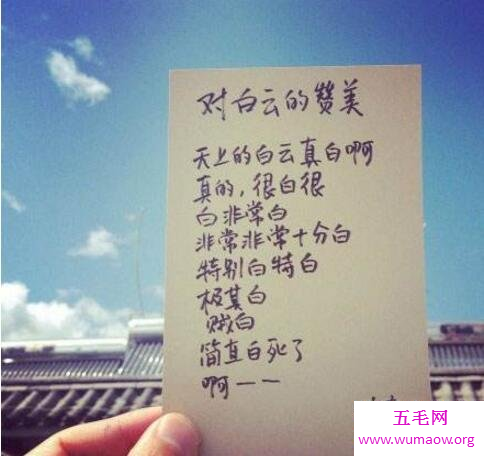 对白云的赞美
天上的白云真白啊
真的，很白很
白非常白
非常非常十分白
特别白特白
极其白
贼白
简直白死了
啊一一
五毛网
www.wumaow.org